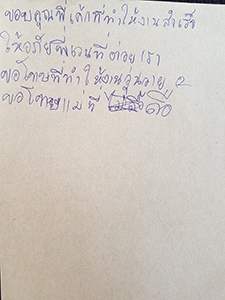 ขอบคุณพี่เค้กที่ทำให้งานสำเร็จ
ให้อภัยพี่เวนที่ต่อยเรา
ขอโทษที่ทำให้งานวุ่นวาย 2
ขอโทษแม่ที่ ดื้อ